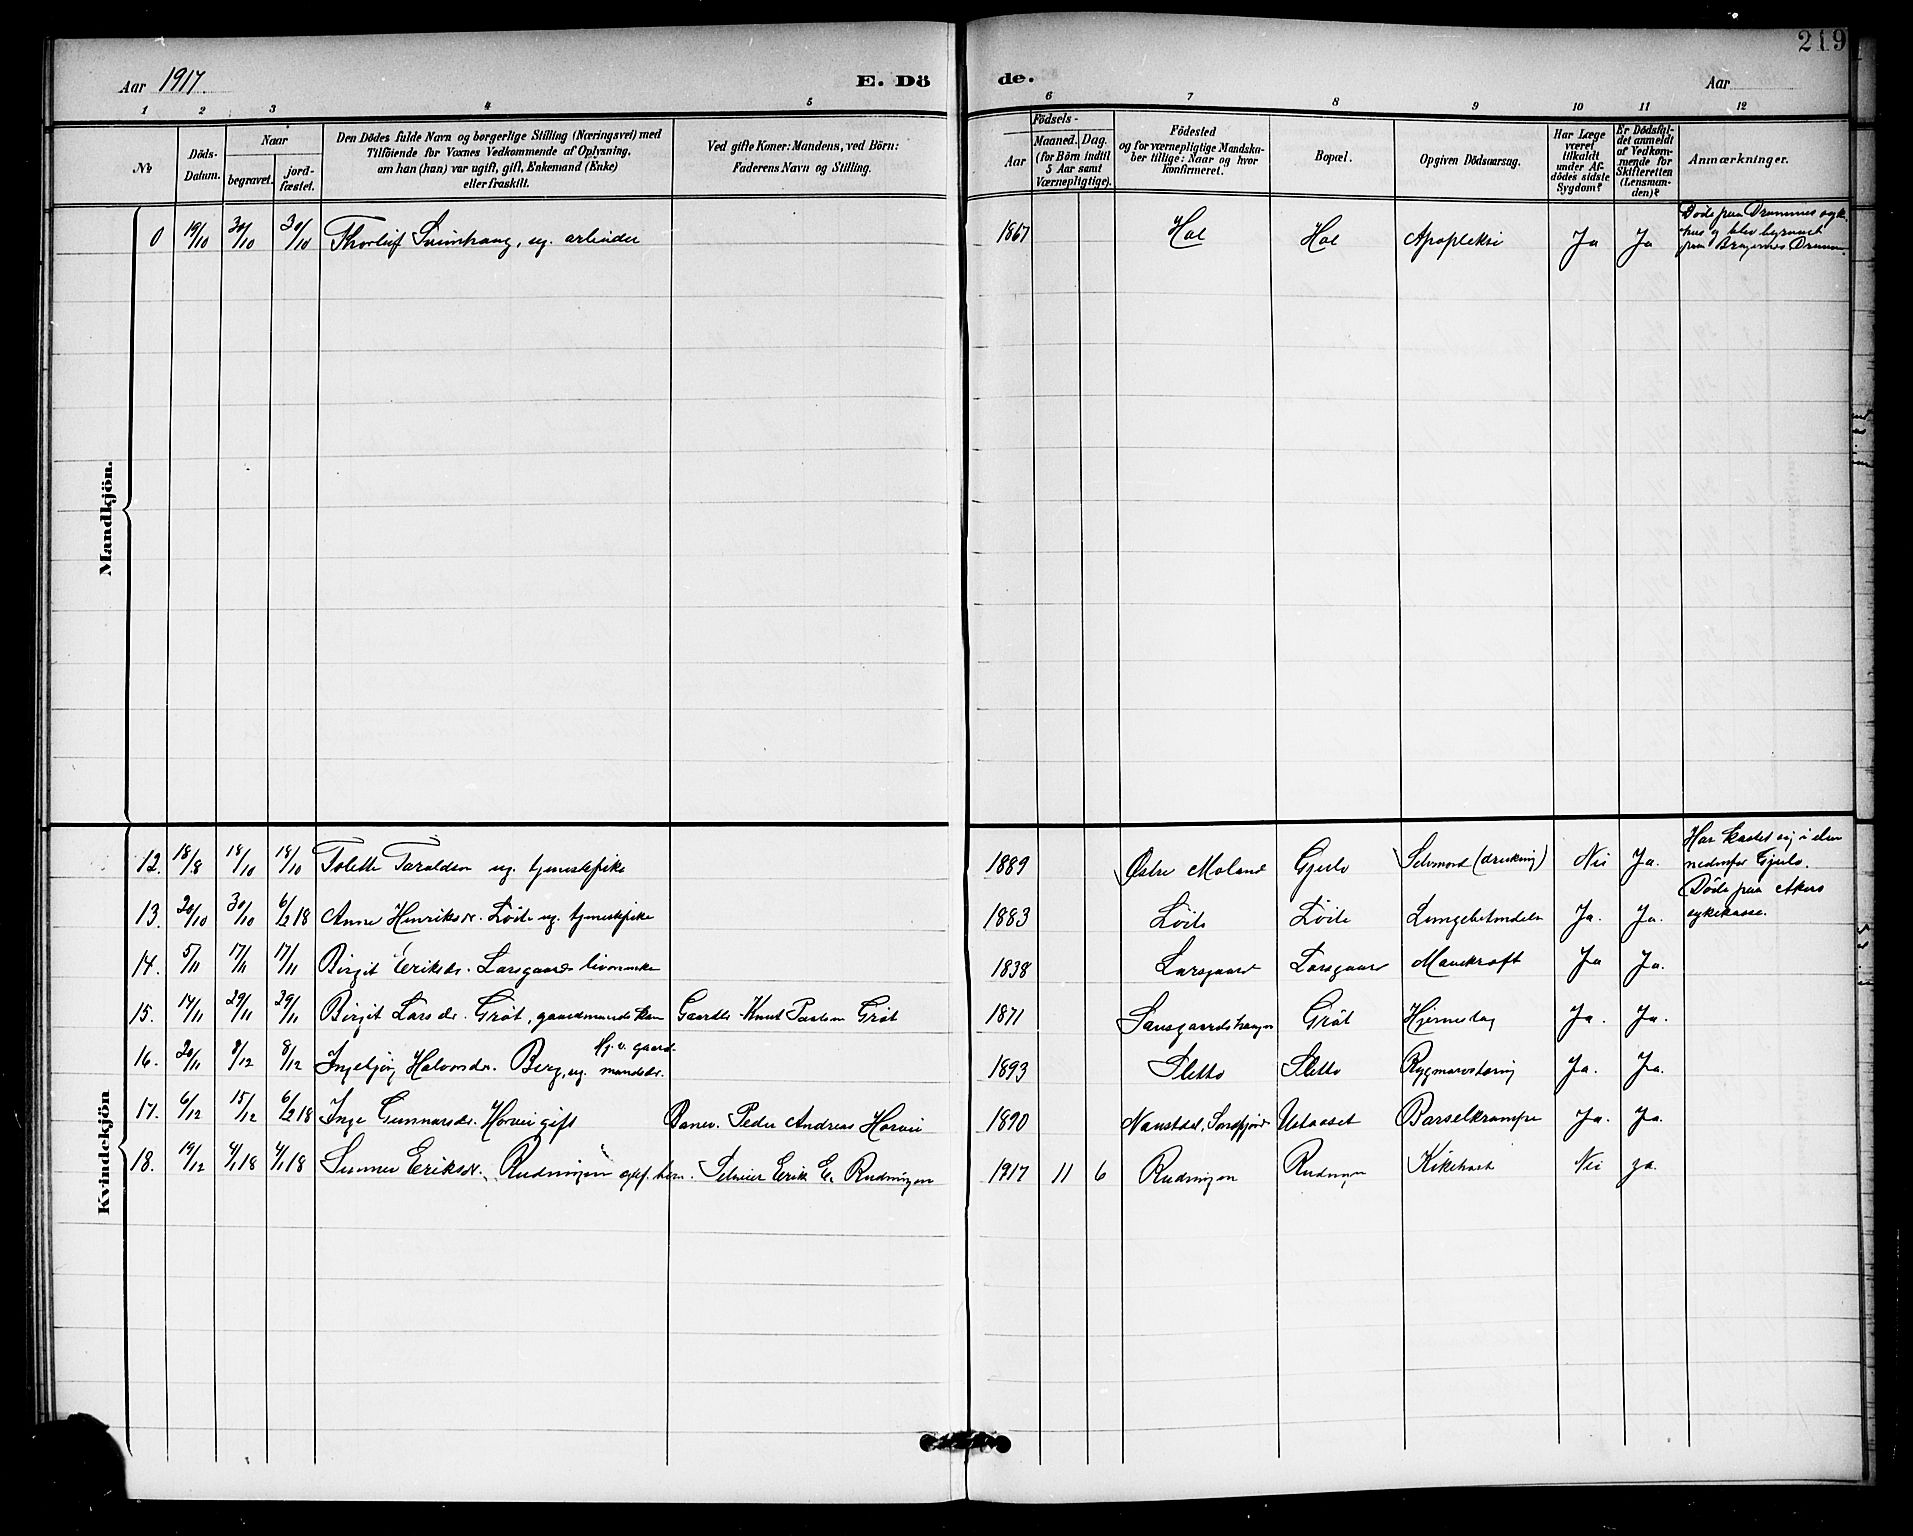 219
Aar 1917.
E. Dö de.
Aar
1 2 3 4 5 6 7 8 9 10 11 12
No
Döds-Datum.
Naar
begravet.
jordfæstet.
Den Dödes fulde Navn og borgerlige Stilling (Næringsvei) med
Tilföiende for Voxnes Vedkommende af Oplysning,
om han (hun) var ugift, gift, Enkemand (Enke)
eller fraskilt.
Ved gifte Koner: Mandens, ved Börn:
Faderens Navn og Stilling.
Födsels-
Aar
Maaned. Dag.
(for Börn indtil
5 Aar samt
Værnepligtige).
Födested
og for værnepligtige Mandska-
ber tillige: Naar og hvor
konfirmeret.
Bopæl.
Opgiven Dödsaarsag.
Har Læge
været
tilkaldt
under Af-
dödes sidste
Sygdom?
Er Dödsfal-
det anmeldt
af Vedkom-
mende for
Skifteretten
(Lensman-
den)?
Anmærkninger.
Mandkjön.
0 19/10 30/10 30/10 Thorleif ug. arbeider 1867 Hol Hol Apopleksi Ja Ja Døde paa Drammens syke-
hus og blev begravet
paa Bragernes Drammen.
Kvindekjön
12. 18/8 18/10 18/10 Tolette Taraldsen ug. tjenestepike 1889 Østre Moland Gjeilo Selvmord (drukning) Nei Ja. Har kastet sig i elven
nedenfor Gjeilo.
13. 20/10 30/10 6/2 18 Anne Henriksdr. Løite ug. tjenestepike 1883 Løite Løite Lungebetændelse Ja. Ja. Døde paa Akers
sykekasse.
14. 5/11 17/11 17/11 Birgit Eriksdr. Larsgaard livøreenke 1838 Larsgaard Larsgaard Mavekræft Ja Ja.
15. 14/11 29/11 29/11 Birgit Larsdr. Grøt, gaardmandskone Gaardbr. Knut Paulsen Grøt 1871 Grøt Hjerneslag Ja. Ja.
16. 20/11 8/12 8/12 Ingebjørg Halvorsdr. Berg, ug. Hj.v. gaard-
mandsdr. 1893 Sletto Sletto Rygmarvstæring Ja. Ja.
17. 6/12 15/12 6/2 18 Inga Gunnarsdr. Horvei gift Banev. Peder Andreas Horvei 1890 Naustdal, Søndfjord Ustaoset Barselkrampe Ja. Ja.
18. 19/12 4/1 18 4/1 18 Sunnev Eriksdr. Rudningen egtef. barn. Selveier Erik E. Rudningen 1917 11 6 Rudningen Rudningen Kikehoste Nei ja.